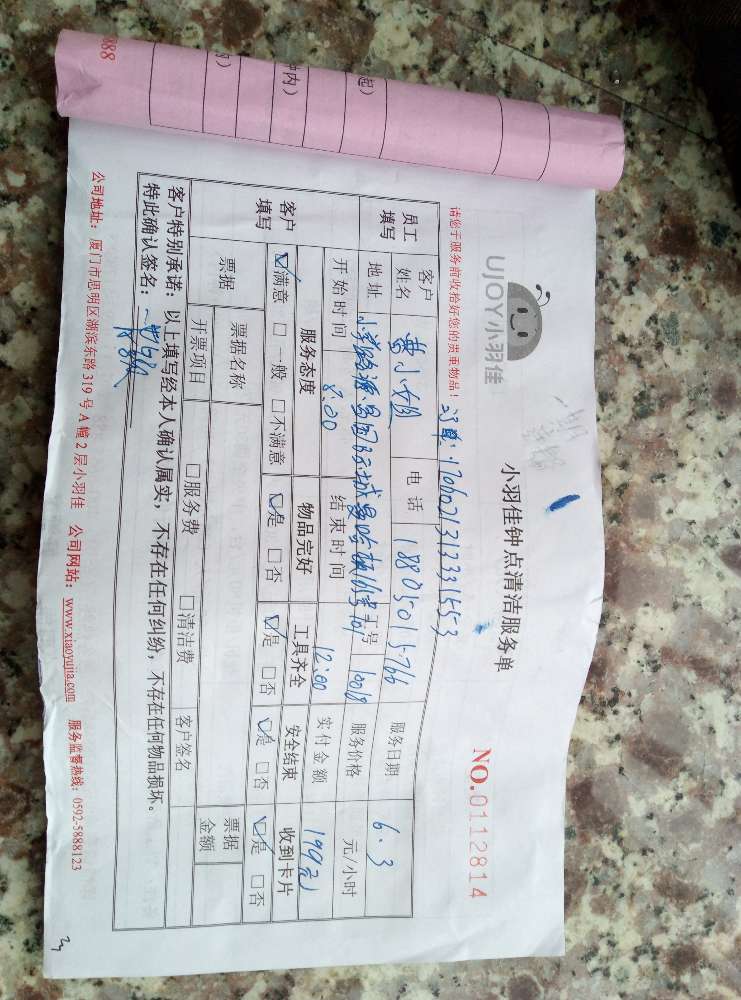 888
约)
钟内)
起)
UJOY小羽佳
小羽佳钟点清洁服务单
NO.0112814
请您于服务前收拾好您的贵重物品!
员工填写
客户姓名
黄小姐
电话
服务日期
6.3
地址
工号
服务价格
元/小时
开始时间
8:00
结束时间
12:00
实付金额
客户填写
服务态度
物品完好
工具齐全
安全结束
收到卡片
☑满意 □一般 □不满意
☑是 □否
☑是 □否
☑是 □否
☑是 □否
票据
票据名称
票据金额
开票项目
□服务费
□清洁费
客户签名
客户特别承诺:以上填写经本人确认属实,不存在任何纠纷,不存在任何物品损坏。
特此确认签名:
公司地址:厦门市思明区湖滨东路319号A幢2层小羽佳 公司网站:www.xiaoyujia.com 服务监督热线:0592-5888123